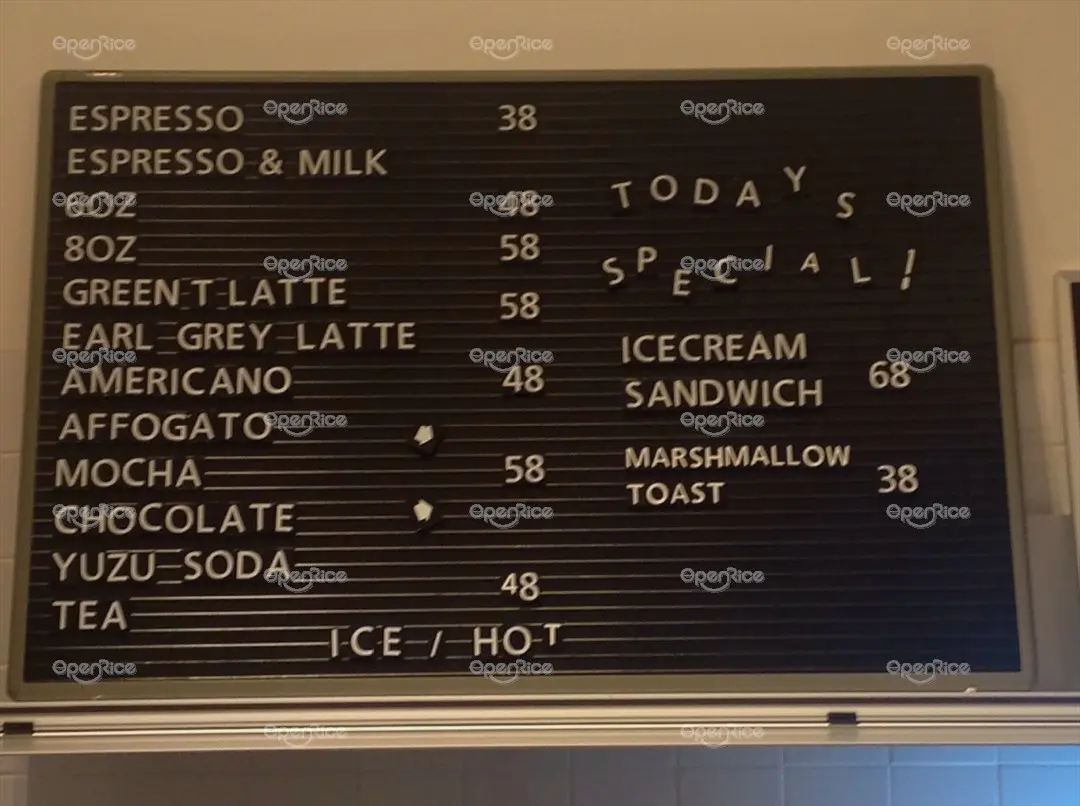 ESPRESSO 38
ESPRESSO & MILK
6OZ 48
8OZ 58
GREEN T LATTE
58
EARL GREY LATTE
AMERICANO 48
AFFOGATO
MOCHA 58
CHOCOLATE
YUZU SODA
48
TEA
ICE / HOT
TODAYS
SPECIAL!
ICECREAM
SANDWICH 68
MARSHMALLOW
TOAST 38
OpenRice